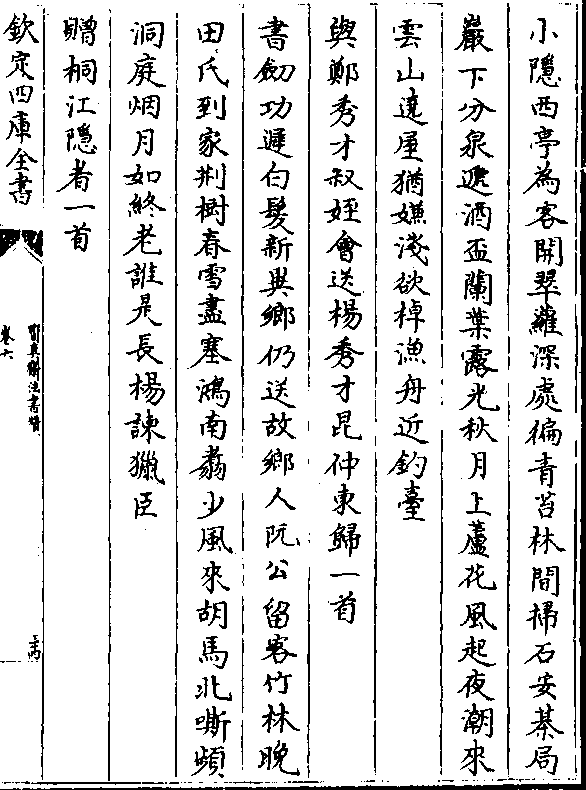 小隱西亭為客開翠蘿深處徧青苔林間掃石安棊局
巖下分泉遞酒盃蘭葉露光秋月上蘆花風起夜潮來
雲山遶屋猶嫌淺欲棹漁舟近釣臺
與鄭秀才叔姪會送楊秀才昆仲東歸一首
書劒功遲白髮新異鄉仍送故鄉人阮公留客竹林晩
田氏到家荆樹春雪盡塞鴻南翥少風來胡馬北嘶頻
洞庭烟月如終老誰是長楊諫獵臣
贈桐江隱者一首
欽定四庫全書
卷六